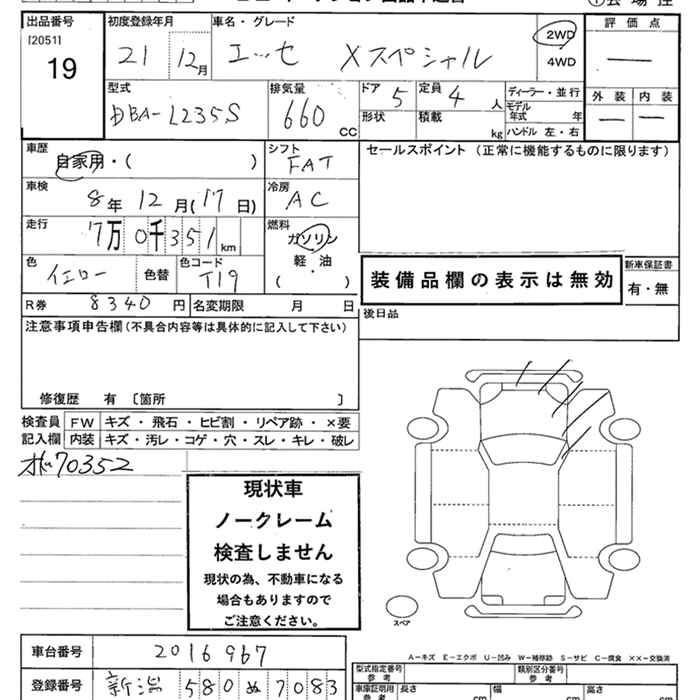 出品番号 初度登録年月 車名・グレード 2WD 4WD 評価点
[2051]
19 21 12月 エッセ Xスペシャル ―
型式 排気量 ドア 定員 ディーラー・並行 外装 内装
DBA-L235S 660 CC 5 4人 モデル年式 年 ― ―
形状 積載 kg ハンドル 左・右
車歴 自家用・( ) シフト FAT セールスポイント（正常に機能するものに限ります）
車検 8年12月(17日) 冷房 AC
走行 7万0千351km 燃料 ガソリン・軽油・( )
色 イエロー 色替 色コード T19 装備品欄の表示は無効 新車保証書 有・無
R券 8340円 名変期限 月 日 後日品
注意事項申告欄（不具合内容等は具体的に記入して下さい）
修復歴 有〔箇所 〕
検査員 FW キズ・飛石・ヒビ割・リペア跡・×要
記入欄 内装 キズ・汚レ・コゲ・穴・スレ・キレ・破レ
70352
現状車
ノークレーム
検査しません
現状の為、不動車になる
場合もありますので
ご注意ください。
スペア
車台番号 2016967 A-キズ E-エクボ U-凹み W-補修跡 S-サビ C-腐食 ××-交換済
型式指定番号 参考 類別区分番号 参考
登録番号 新潟 580 ぬ 7083 車庫証明用 参考 長さ cm 幅 cm 高さ cm